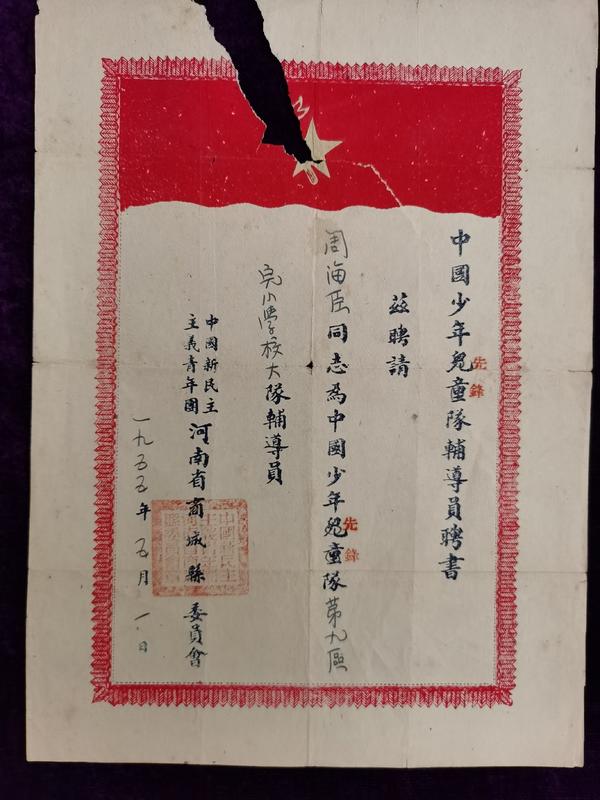 中國少年兒童隊輔導員聘書
先鋒
茲聘請
周海臣同志為中國少年兒童隊第九區
先鋒
完小學校大隊輔導員
中國新民主
主義青年團
河南省商城縣委員會
一九五五年五月一日